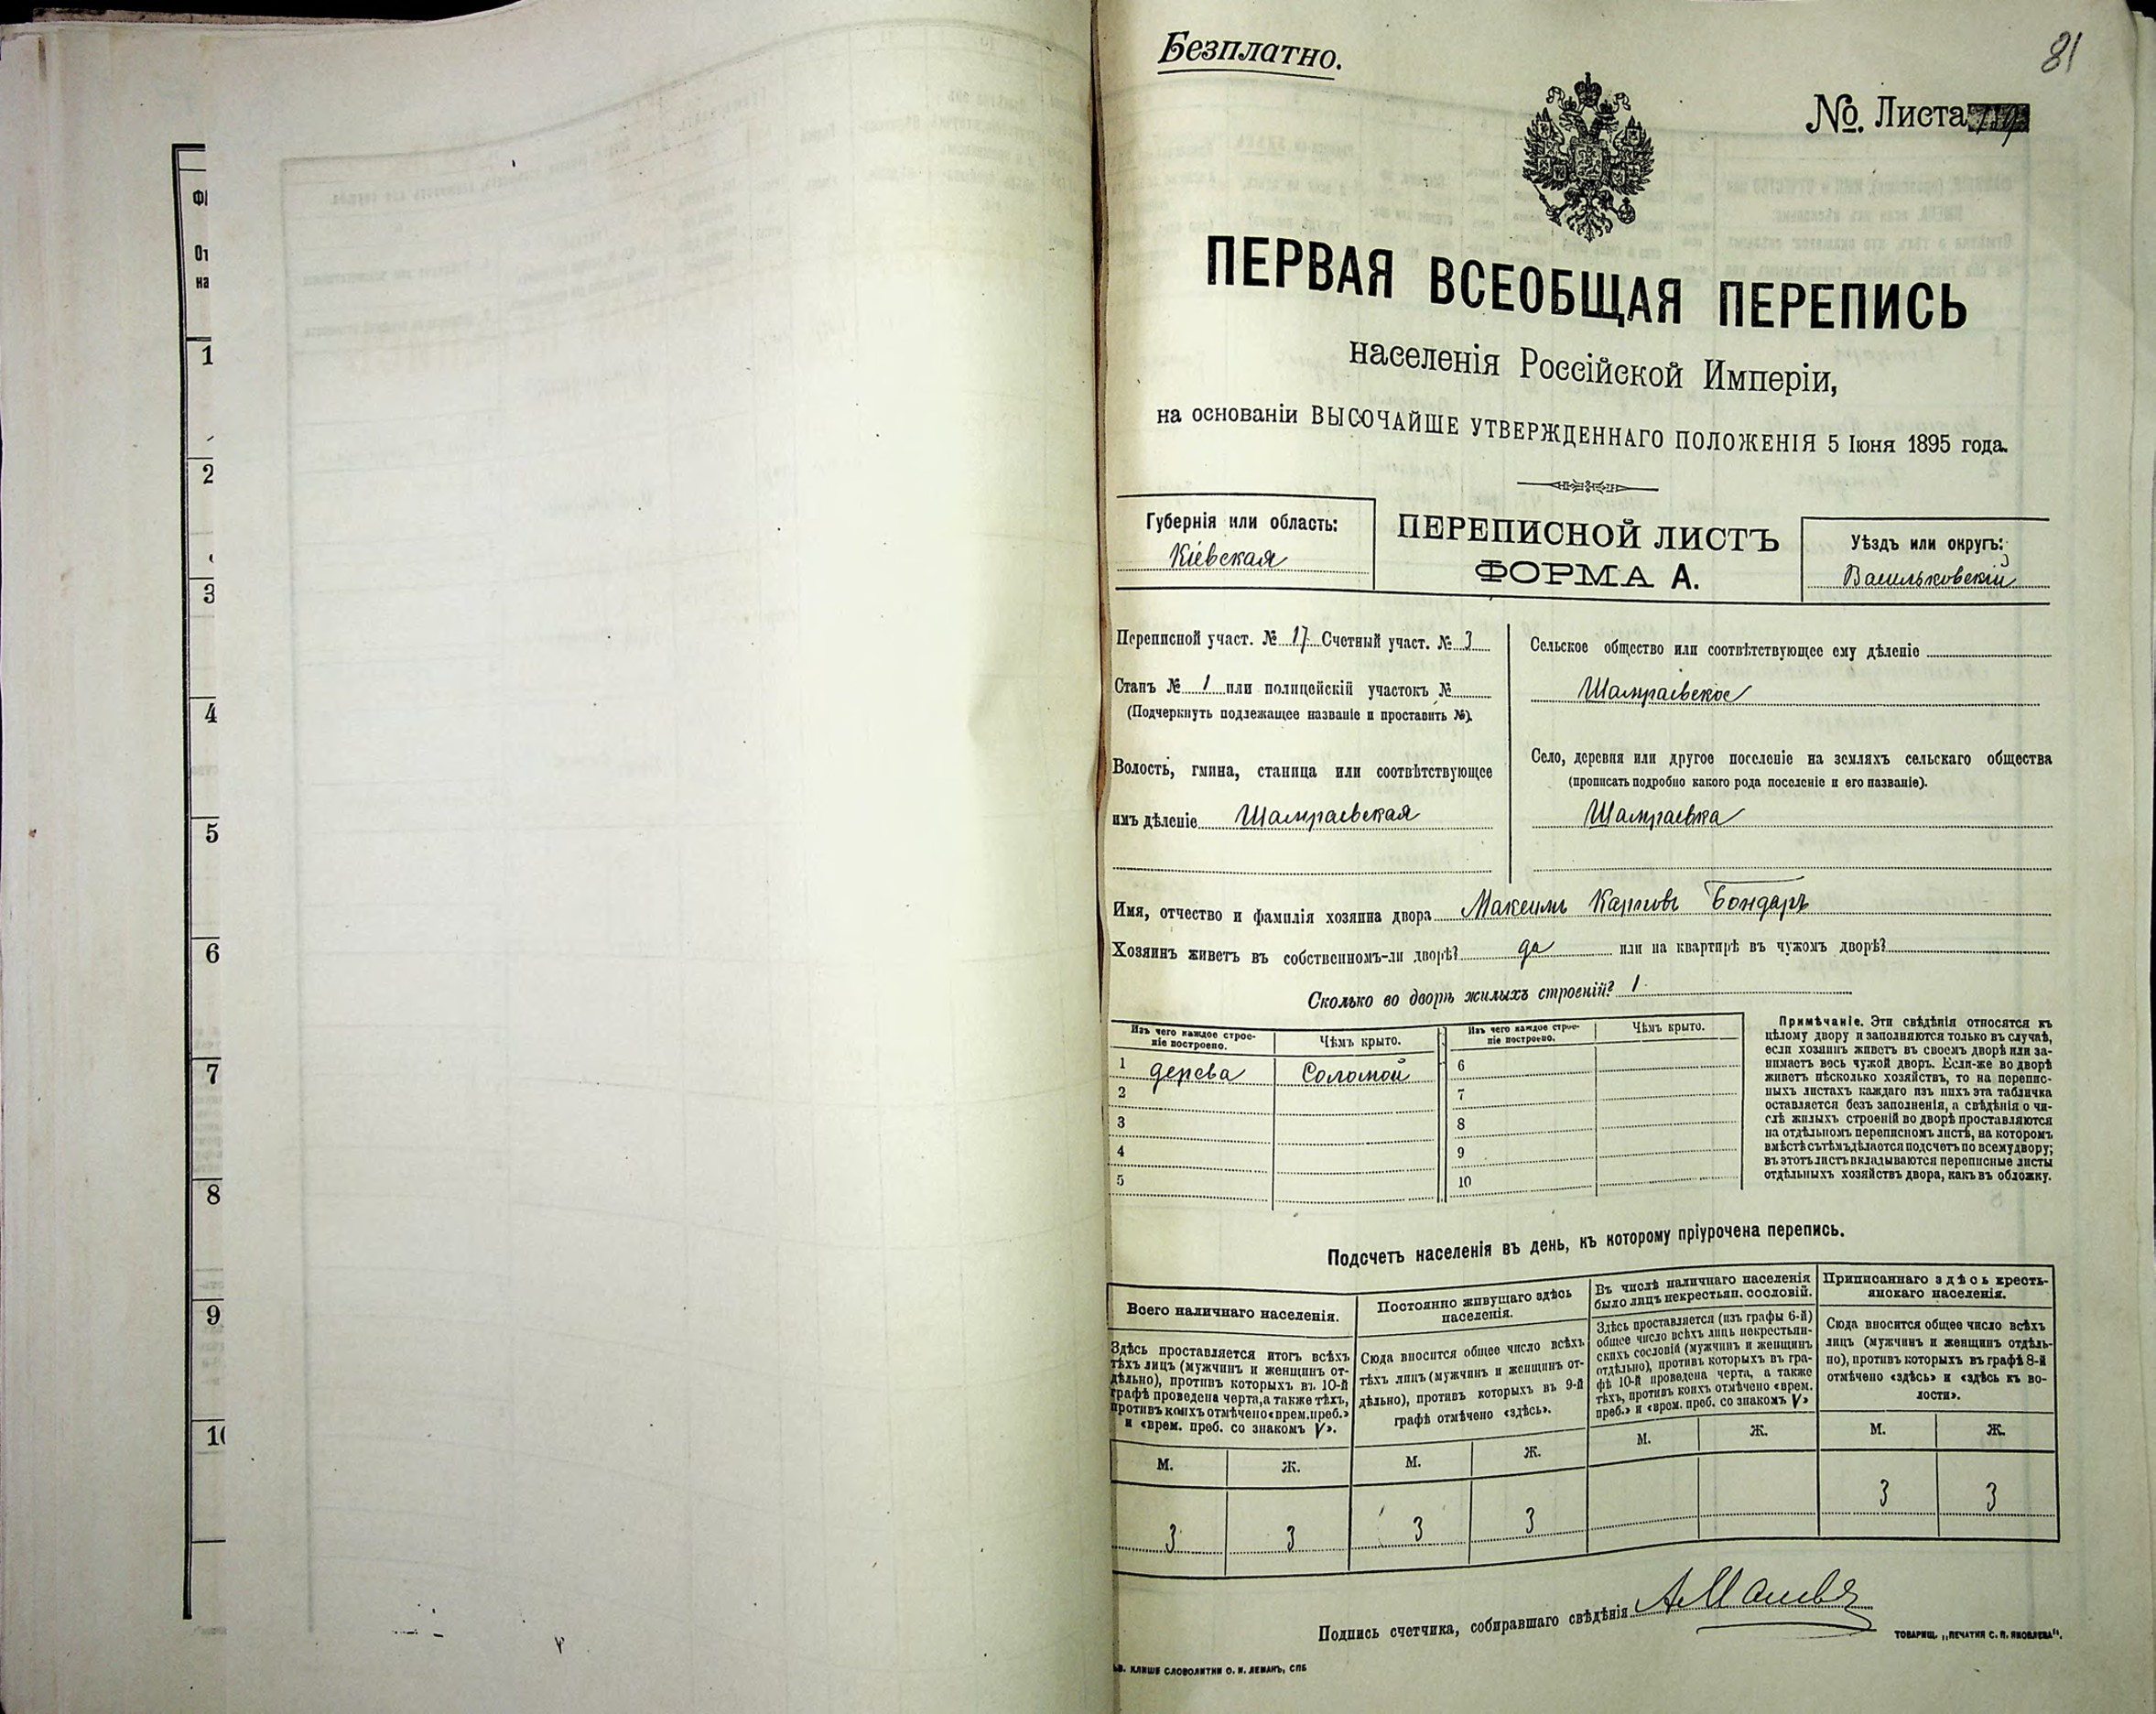 Фи
От
на
1
2
3
4
5
6
7
8
9
10
Безплатно.
81
№. Листа
ПЕРВАЯ ВСЕОБЩАЯ ПЕРЕПИСЬ
населенія Россійской Имперіи,
на основаніи ВЫСОЧАЙШЕ УТВЕРЖДЕННАГО ПОЛОЖЕНІЯ 5 Іюня 1895 года.
Губернія или область:
Кіевская
ПЕРЕПИСНОЙ ЛИСТЪ
ФОРМА А.
Уѣздъ или округъ:
Васильковскій
Переписной участ. № 17 Счетный участ. № 3
Станъ № 1 или полицейскій участокъ №
(Подчеркнуть подлежащее названіе и проставить №).
Волость, гмина, станица или соотвѣтствующее
имъ дѣленіе Шамраевская
Сельское общество или соотвѣтствующее ему дѣленіе
Шамраевское
Село, деревня или другое поселеніе на земляхъ сельскаго общества
(прописать подробно какого рода поселеніе и его названіе).
Шамраевка
Имя, отчество и фамилія хозяина двора Максимъ Карповъ Бондарь
Хозяинъ живетъ въ собственномъ-ли дворѣ? да или на квартирѣ въ чужомъ дворѣ?
Сколько во дворѣ жилыхъ строеній? 1
Изъ чего каждое строе-
ніе построено.
Чѣмъ крыто.
Изъ чего каждое строе-
ніе построено.
Чѣмъ крыто.
1 дерева Соломой
2
3
4
5
6
7
8
9
10
Примѣчаніе. Эти свѣдѣнія относятся къ
цѣлому двору и заполняются только въ случаѣ,
если хозяинъ живетъ въ своемъ дворѣ или за-
нимаетъ весь чужой дворъ. Если-же во дворѣ
живетъ нѣсколько хозяйствъ, то на перепис-
ныхъ листахъ каждаго изъ нихъ эта табличка
оставляется безъ заполненія, а свѣдѣнія о чи-
слѣ жилыхъ строеній во дворѣ проставляются
на отдѣльномъ переписномъ листѣ, на которомъ
вмѣстѣ съ тѣмъ дѣлается подсчетъ по всему двору;
въ этотъ листъ вкладываются переписные листы
отдѣльныхъ хозяйствъ двора, какъ въ обложку.
Подсчетъ населенія въ день, къ которому пріурочена перепись.
Всего наличнаго населенія.
Здѣсь проставляется итогъ всѣхъ
тѣхъ лицъ (мужчинъ и женщинъ от-
дѣльно), противъ которыхъ въ 10-й
графѣ проведена черта, а также тѣхъ,
противъ коихъ отмѣчено «врем. преб.»
и «врем. преб. со знакомъ V».
Постоянно живущаго здѣсь
населенія.
Сюда вносится общее число всѣхъ
тѣхъ лицъ (мужчинъ и женщинъ от-
дѣльно), противъ которыхъ въ 9-й
графѣ отмѣчено «здѣсь».
Въ числѣ наличнаго населенія
было лицъ некрестьян. сословій.
Здѣсь проставляется (изъ графы 6-й)
общее число всѣхъ лицъ некрестьян-
скихъ сословій (мужчинъ и женщинъ
отдѣльно), противъ которыхъ въ гра-
фѣ 10-й проведена черта, а также
тѣхъ, противъ коихъ отмѣчено «врем.
преб.» и «врем. преб. со знакомъ V»
Приписаннаго здѣсь кресть-
янскаго населенія.
Сюда вносится общее число всѣхъ
лицъ (мужчинъ и женщинъ отдѣль-
но), противъ которыхъ въ графѣ 8-й
отмѣчено «здѣсь» и «здѣсь къ во-
лости».
М. Ж. М. Ж. М. Ж. М. Ж.
3 3 3 3 3 3
Подпись счетчика, собиравшаго свѣдѣнія
ТОВАРИЩ. „ПЕЧАТНЯ С. П. ЯКОВЛЕВА“.
КЛИШЕ СЛОВОЛИТНИ О. И. ЛЕМАНЪ, СПБ